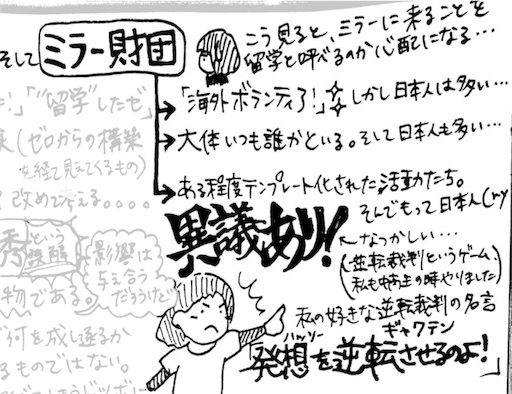 そして ミラー財団
こう見ると、ミラーに来ることを
留学と呼べるのか心配になる…
「海外ボランティア！」しかし日本人は多い…
大体いつも誰かといる。そして日本人も多い…
ある程度テンプレート化された活動たち。
そんでもって日本人(ry
異議あり!!
なつかしい…
(逆転裁判というゲーム、
私も中学生の時やりました)
私の好きな逆転裁判の名言
ハッソー ギャクテン
「発想を逆転させるのよ！」
"留学"したぜ」
(ゼロからの構築
を経て見えてくるもの)
改めて考える。。。。
秀という
誤解
影響は
与え合う
だろうけど
物である。
何を成し遂るか
るものではない。